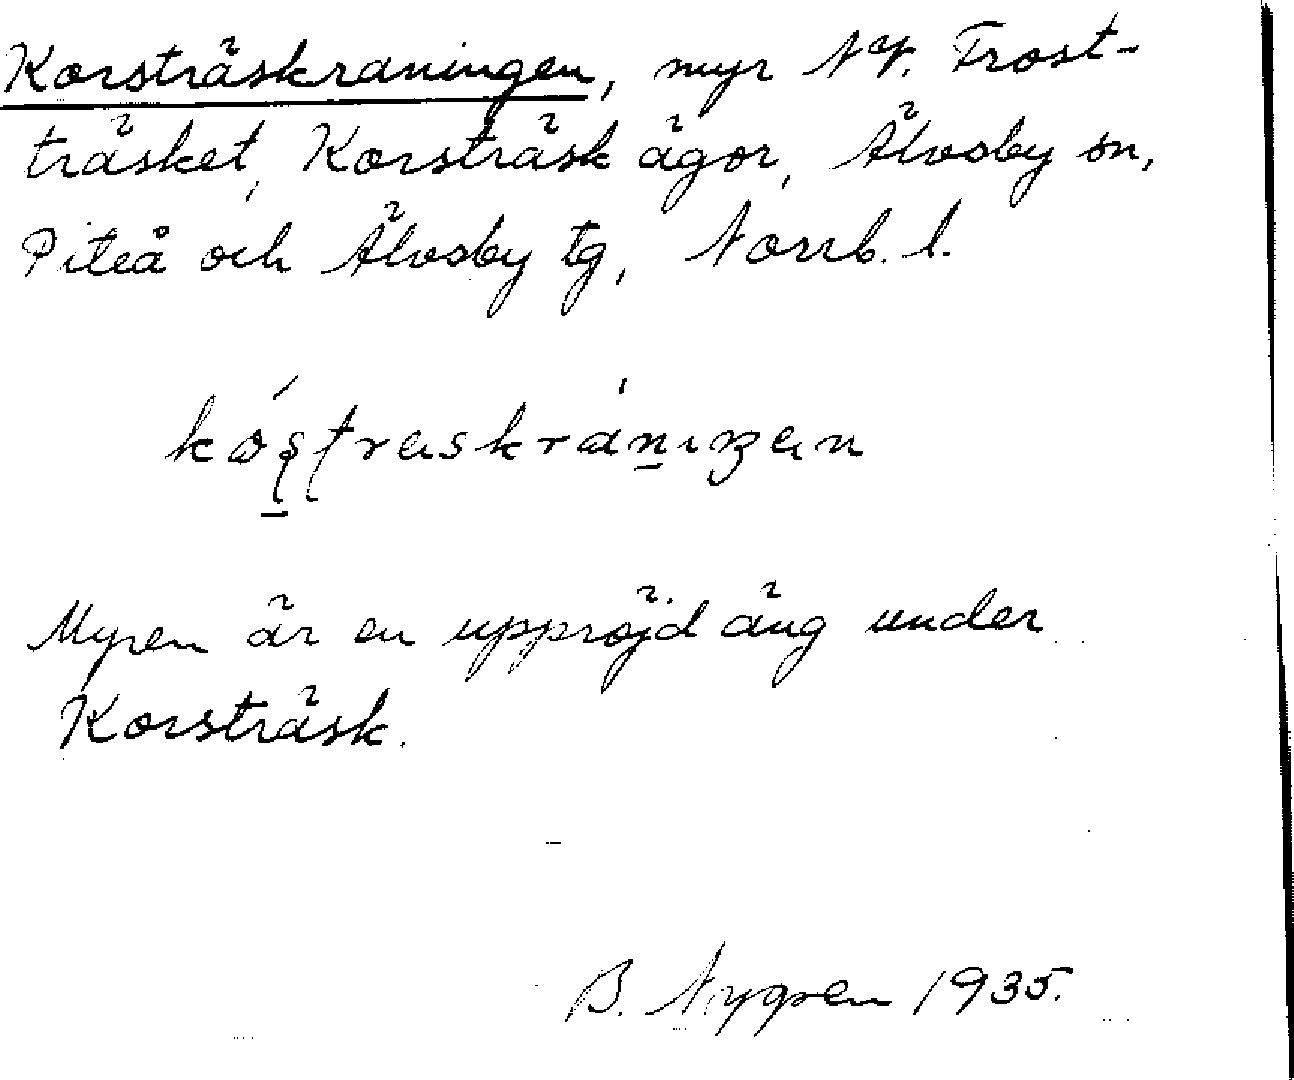 Korsträskraningen, myr NV. Frost-
träsket, Korsträsk ägor, Älvsby sn,
Piteå och Älvsby tg, Norrb. l.
Myren är en uppröjd äng under
Korsträsk.
B. Nygren 1935.